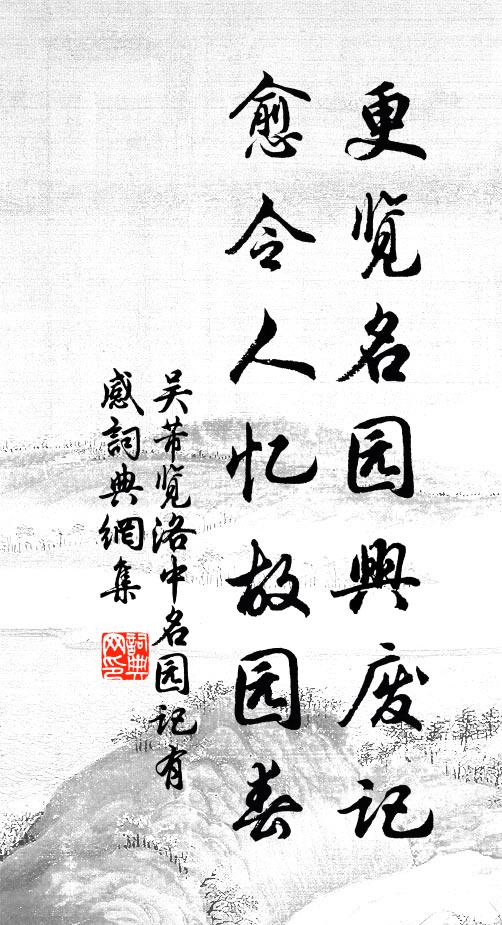 更览名园興废记
愈令人忆故园春
吴芾览洛中名园记有
感詞典網集
詞典
网印